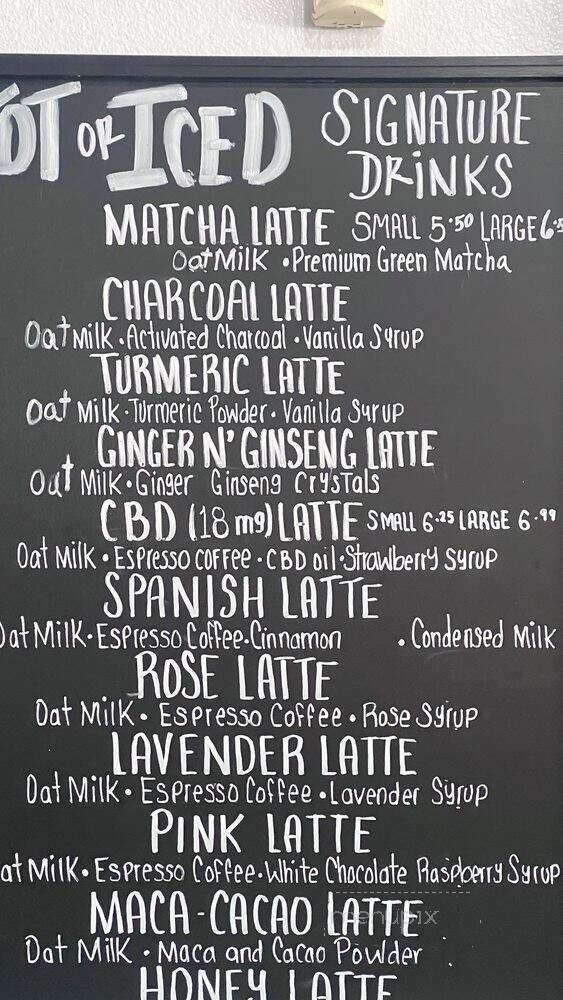 OT OR ICED SIGNATURE
DRINKS
MATCHA LATTE SMALL 5.50 LARGE 6.5
Oat Milk • Premium Green Matcha
CHARCOAL LATTE
Oat Milk • Activated Charcoal • Vanilla Syrup
TURMERIC LATTE
Oat Milk • Turmeric Powder • Vanilla Syrup
GINGER N' GINSENG LATTE
Oat Milk • Ginger Ginseng Crystals
CBD (18 mg) LATTE SMALL 6.25 LARGE 6.99
Oat Milk • Espresso Coffee • CBD oil • Strawberry Syrup
SPANISH LATTE
Oat Milk • Espresso Coffee • Cinnamon • Condensed Milk
ROSE LATTE
Oat Milk • Espresso Coffee • Rose Syrup
LAVENDER LATTE
Oat Milk • Espresso Coffee • Lavender Syrup
PINK LATTE
at Milk • Espresso Coffee • White Chocolate Raspberry Syrup
MACA - CACAO LATTE
menupix
Oat Milk • Maca and Cacao Powder
HONEY LATTE